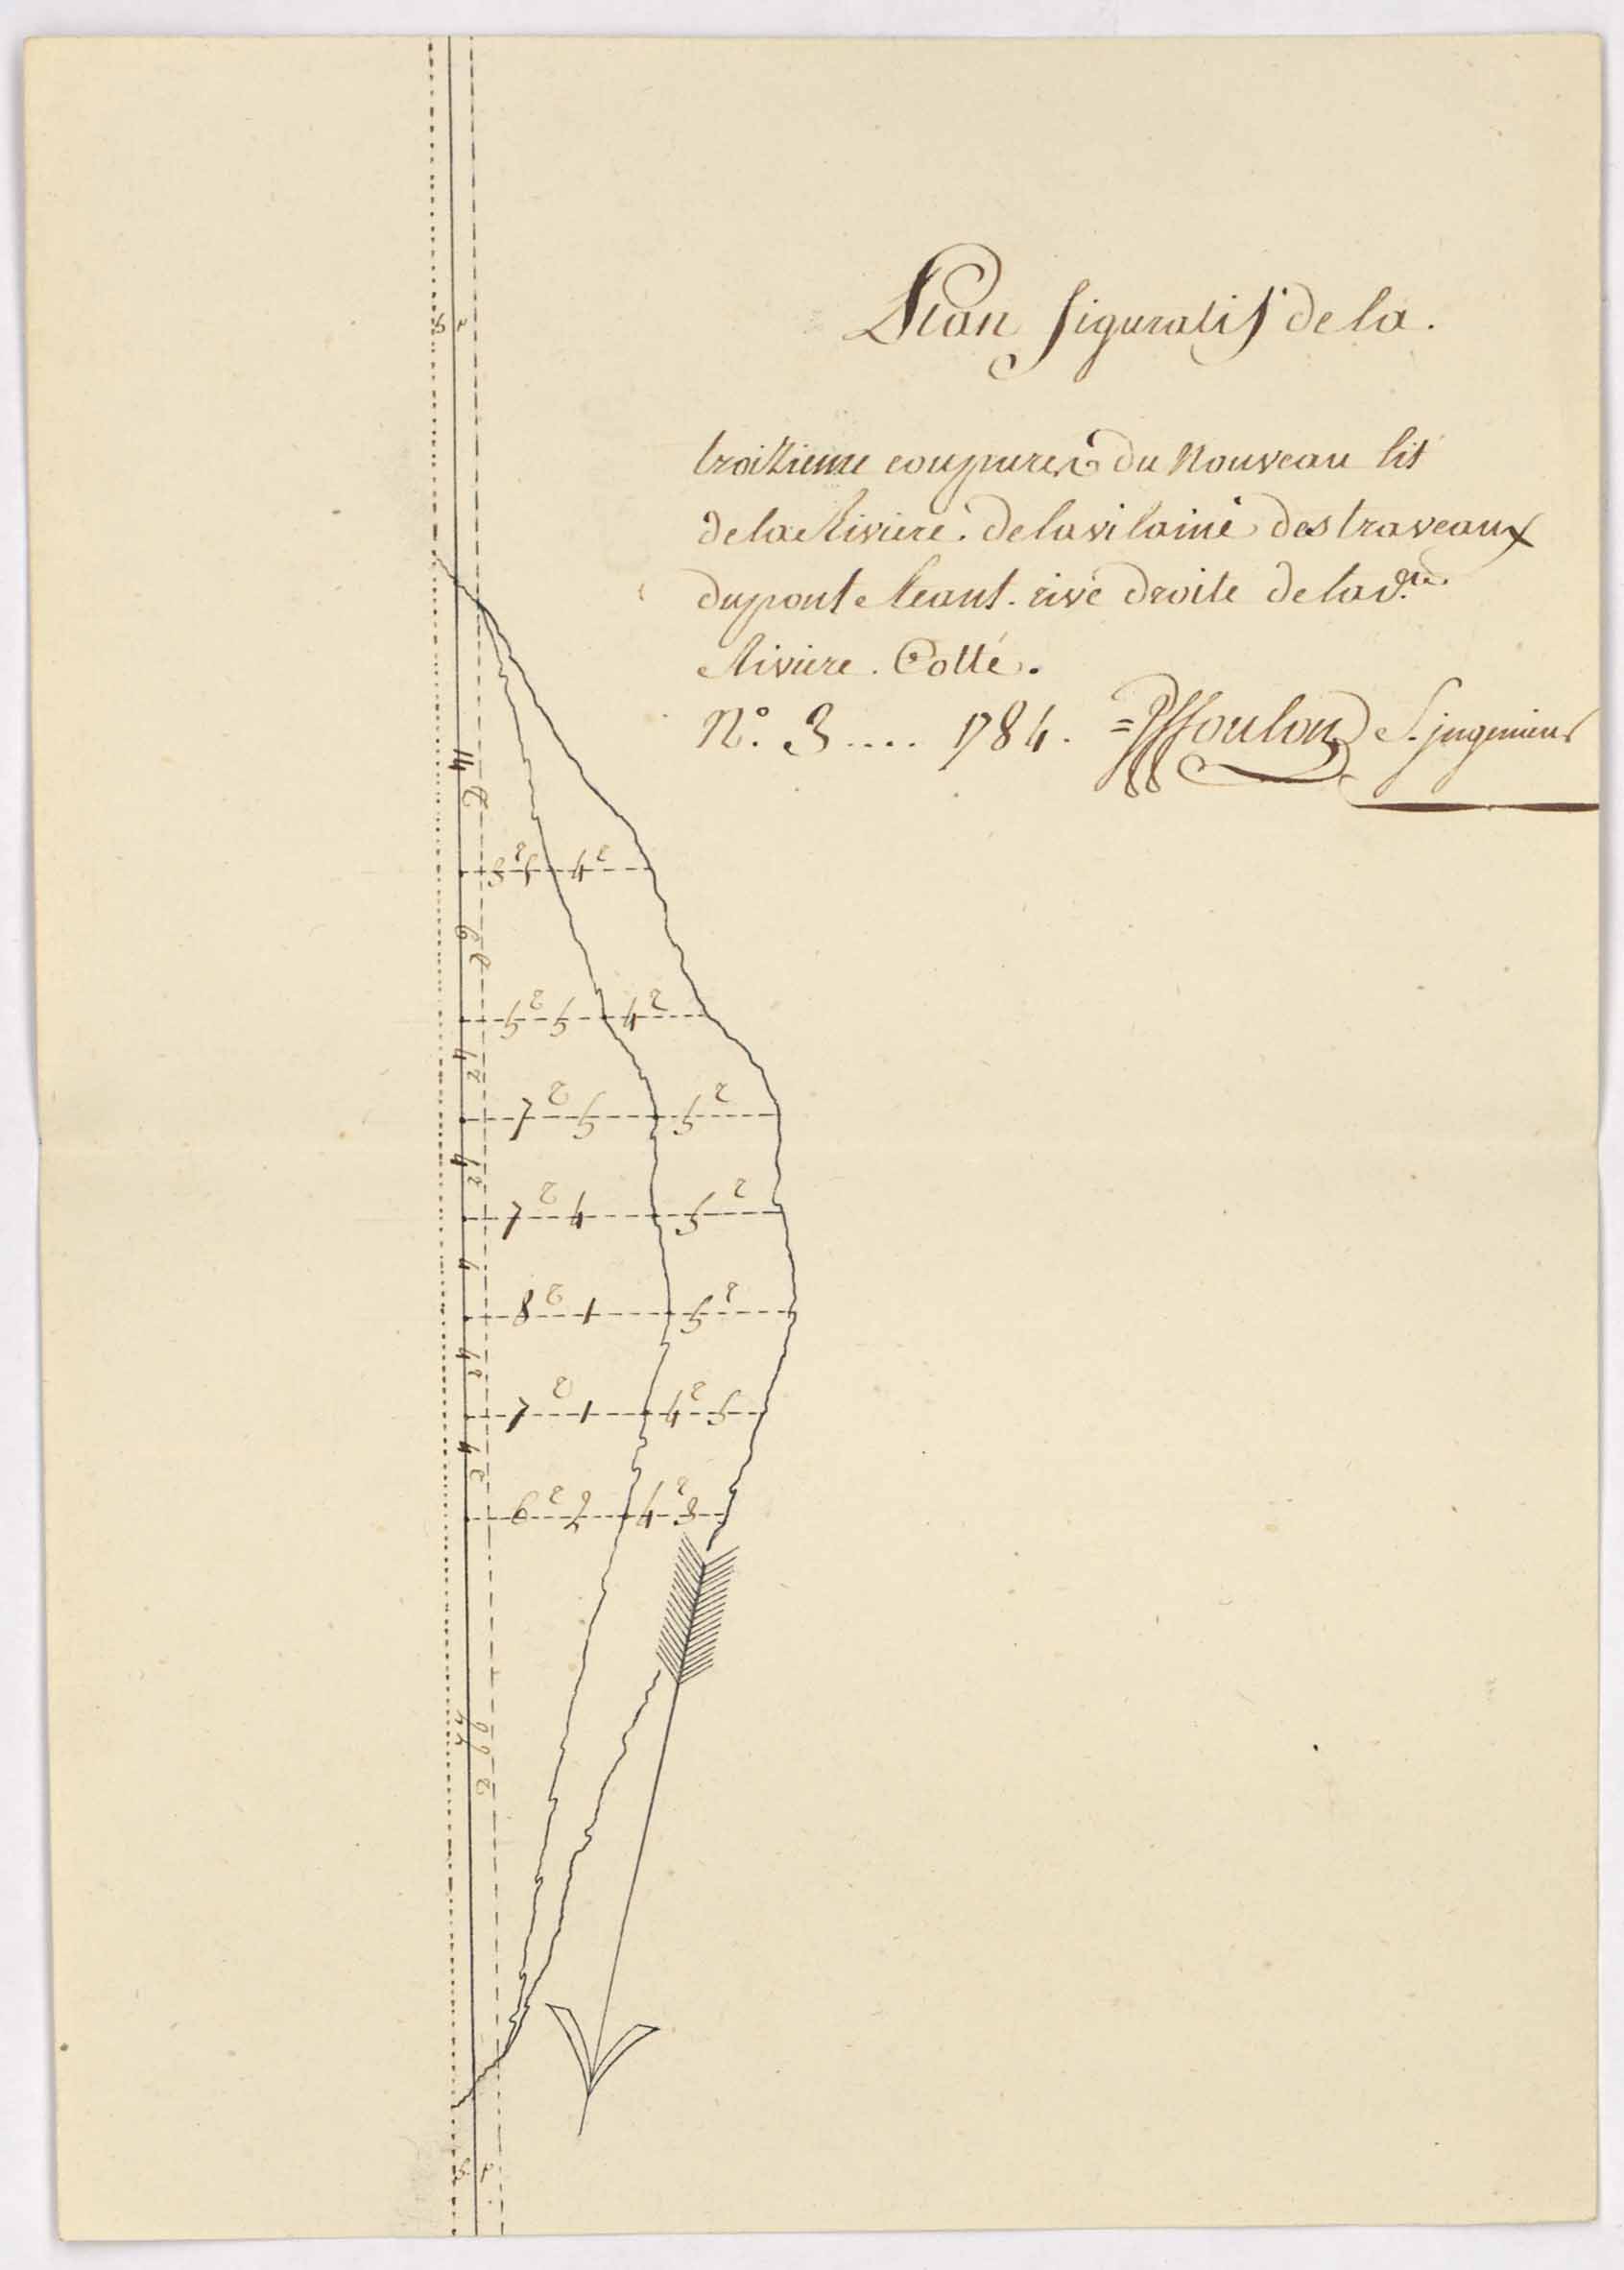 Plan figuratif de la.
troizieme coupure du Nouveau lit
de la Riviere. de la vilaine des traveaux
du pont Reant. rive droite de la d.te
Riviere. Cotté.
N.° 3.... 1784. =Foulon S. jngenieur
14 t
3 t 5 4 t
9 t
5 t 5 4 t
4 t
7 t 5 5 t
4 t
7 t 4 5 t
4
8 t 1 5 t
4 t
7 t 1 4 t 5
4 t
6 t 2 4 t 3